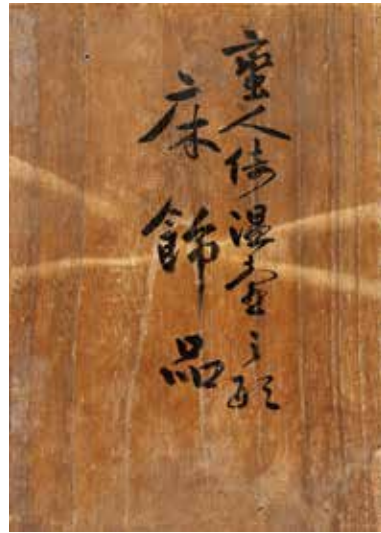 蛮人倚湿壷之形
床飾品